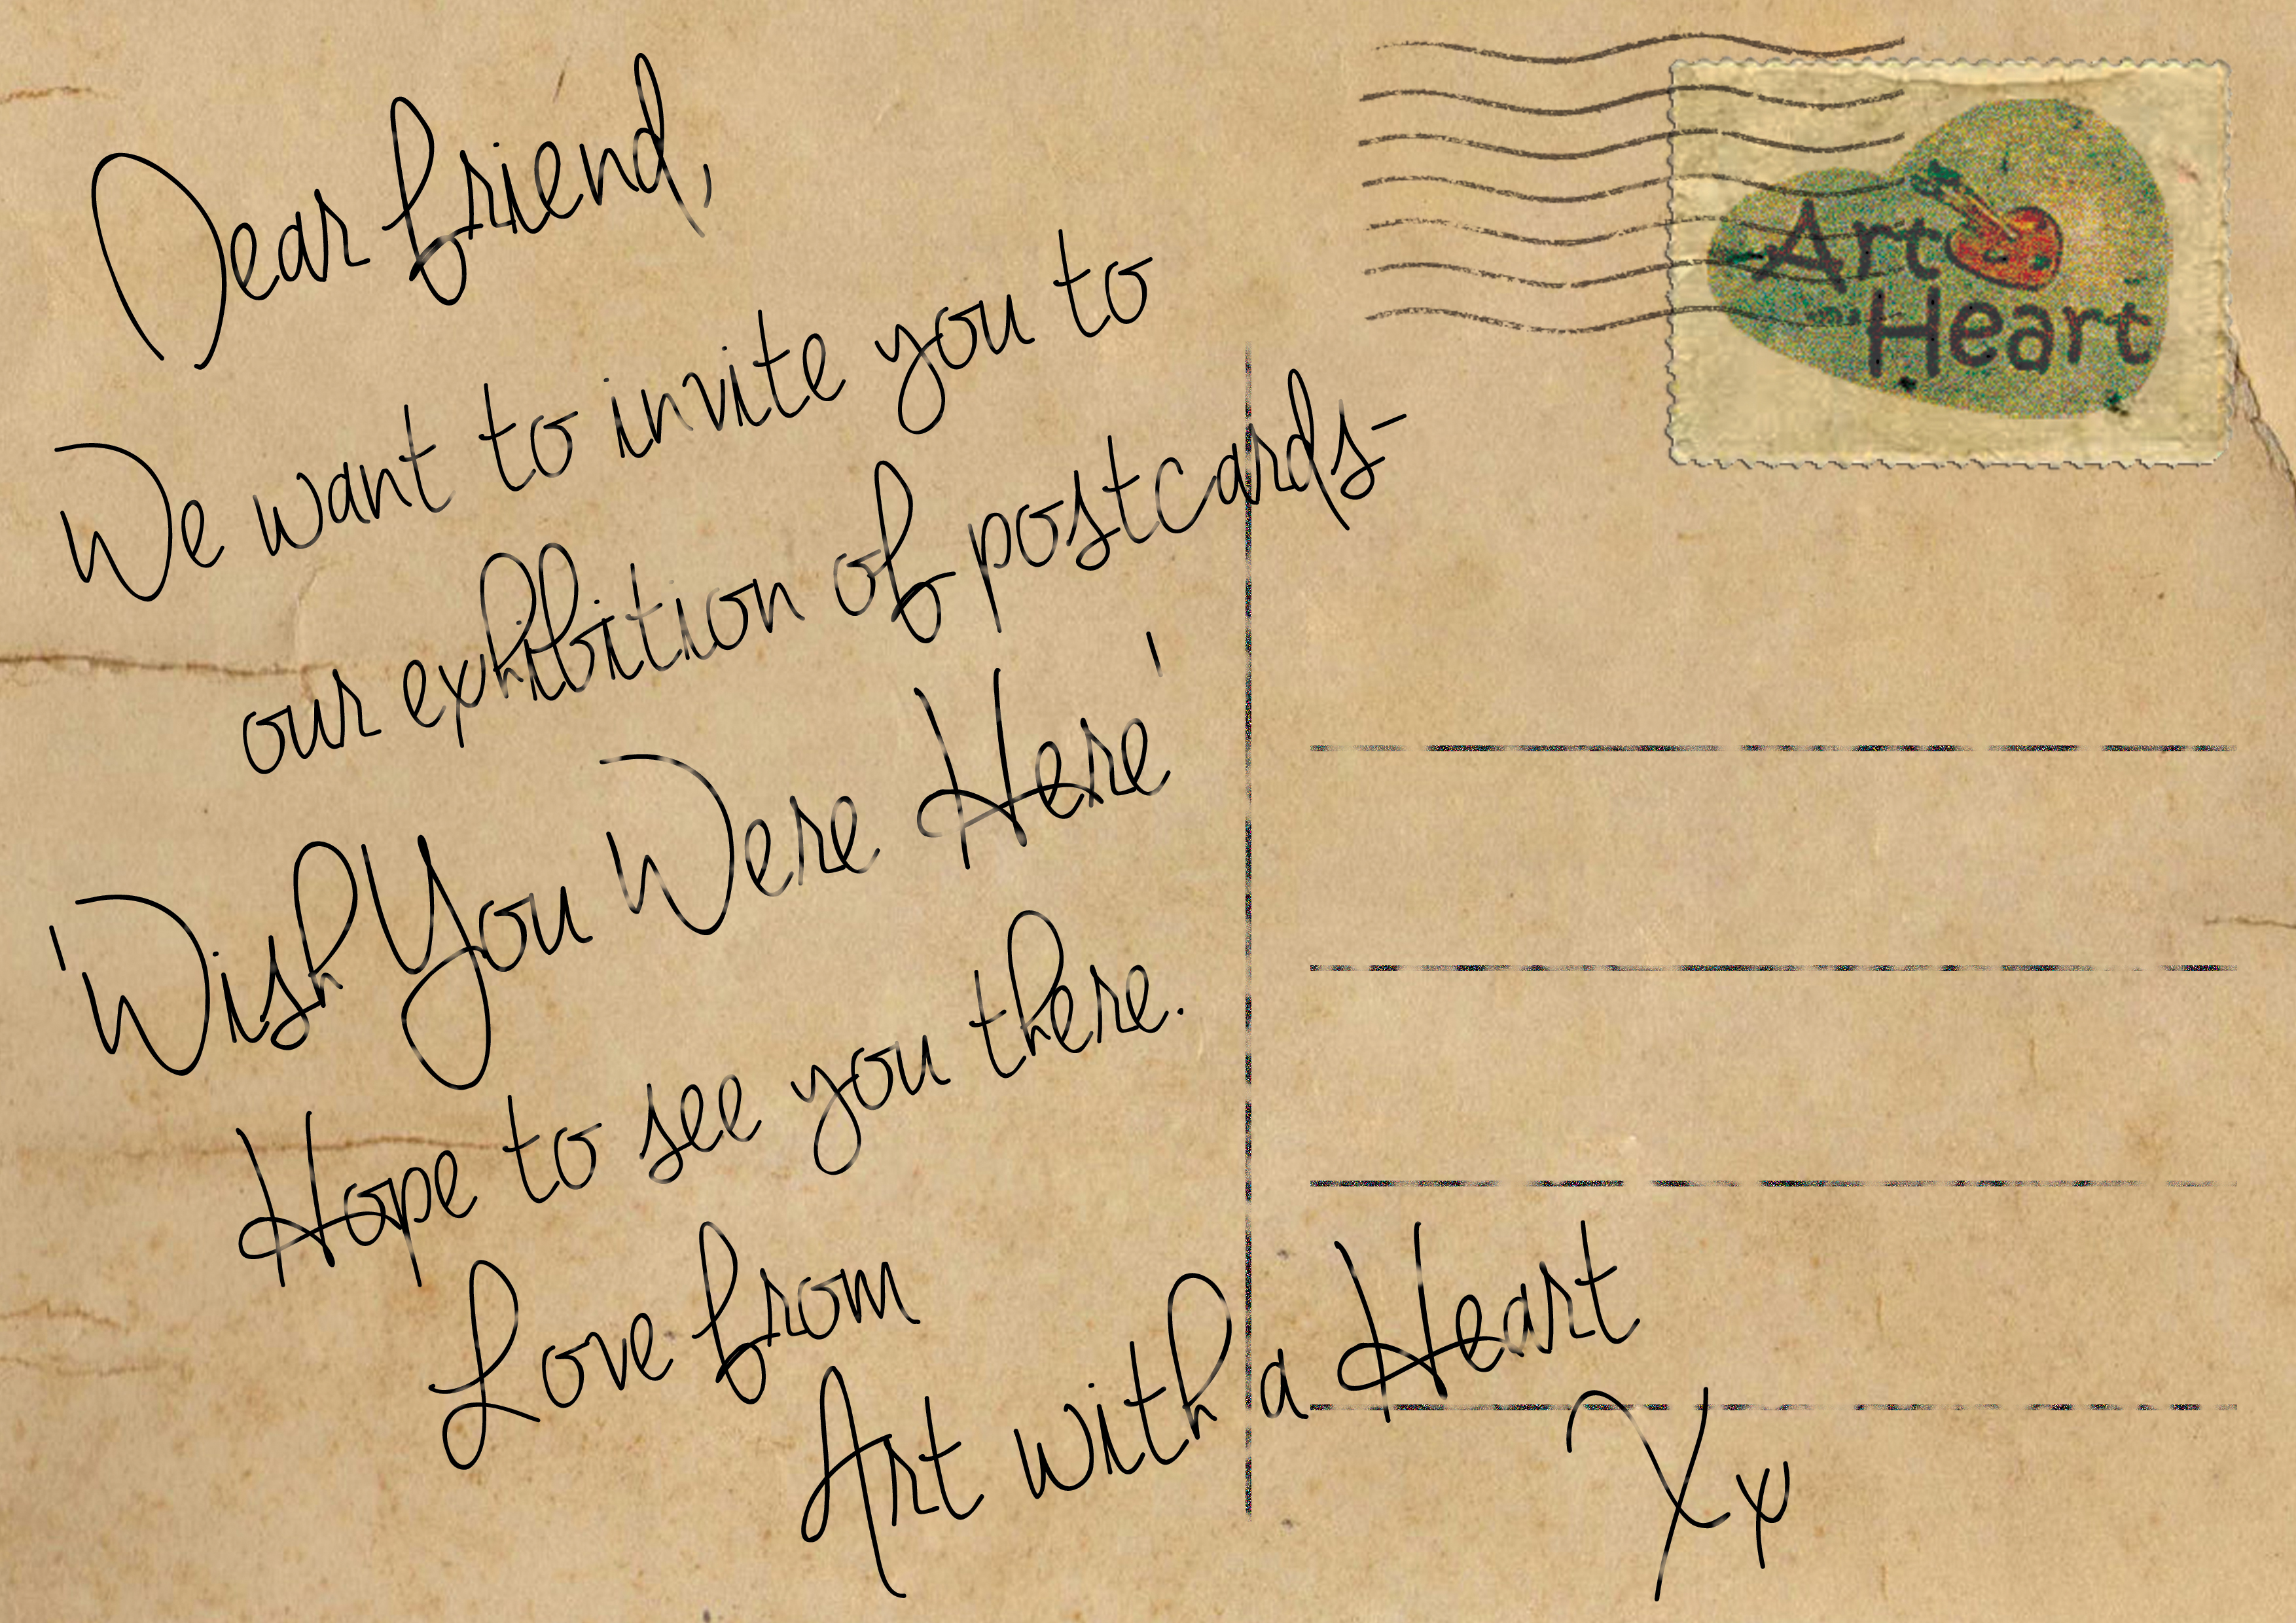 Dear friend,
We want to invite you to
our exhibition of postcards-
'Wish You Were Here'
Hope to see you there.
Love from
Art with a Heart
Xx
Art
Heart